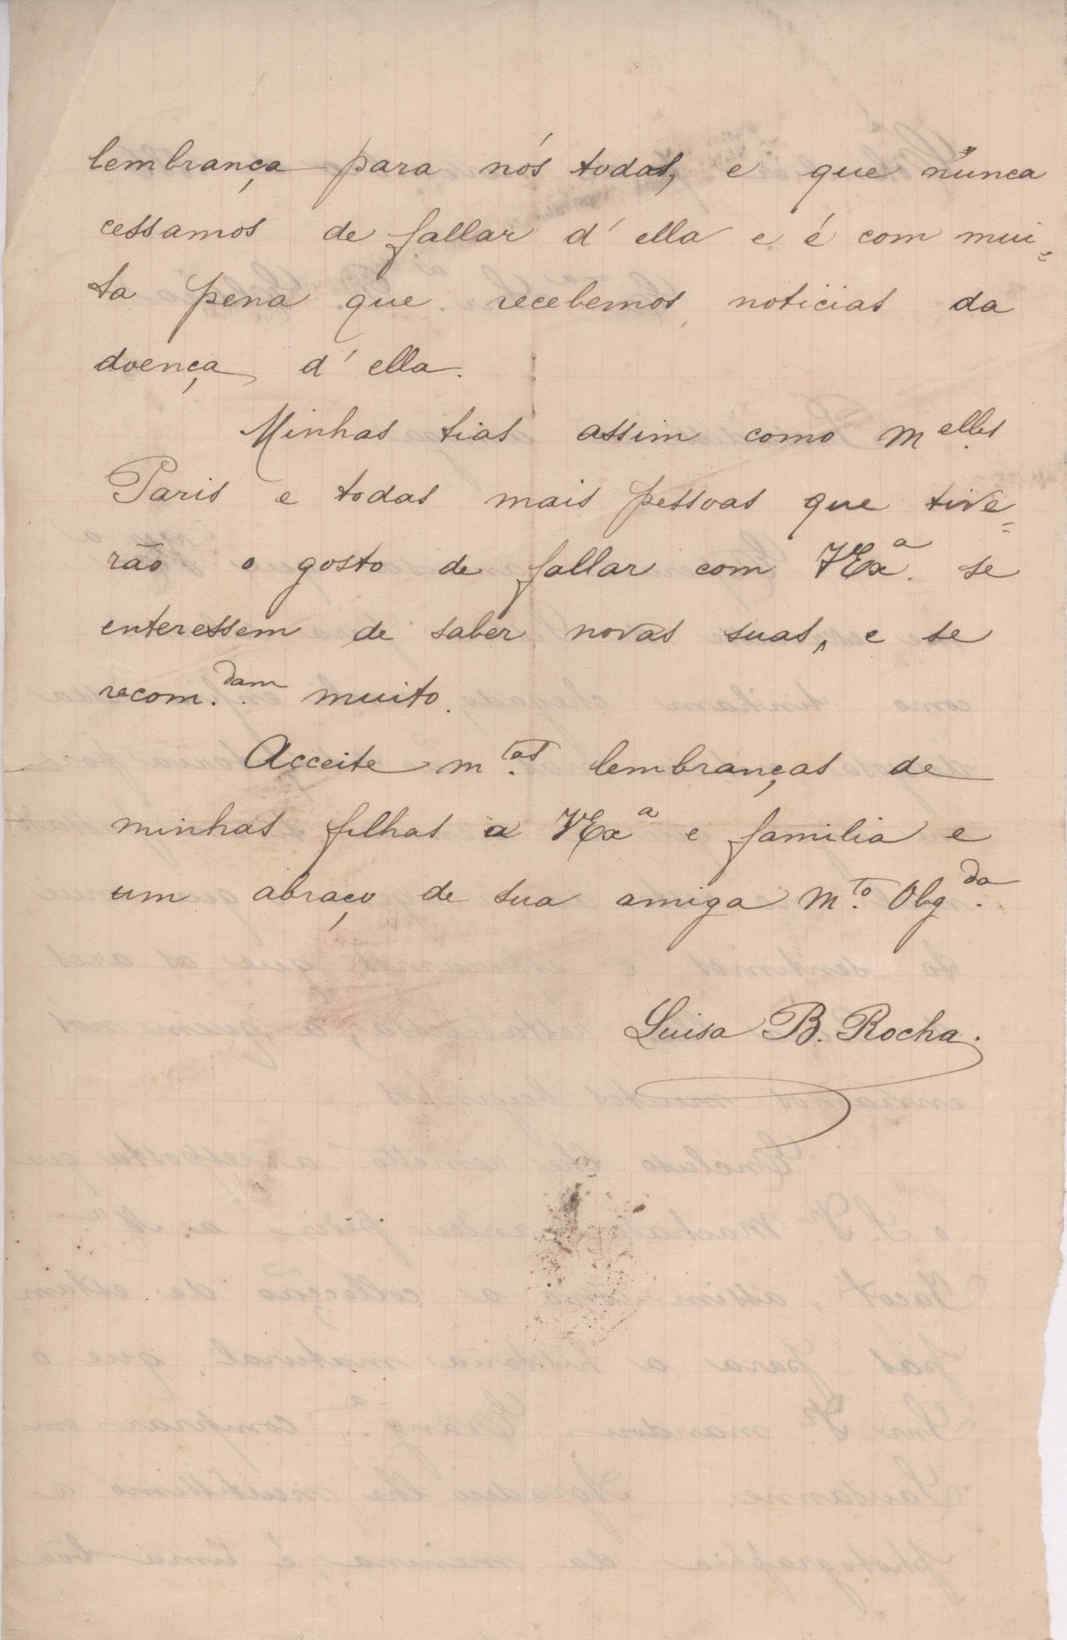 lembrança para nós todas, e que nunca
cessamos de fallar d'ella e é com mui=
ta pena que recebemos noticias da
doença d'ella.
Minhas tias assim como Melles
Paris e todas mais pessoas que tive=
rão o gosto de fallar com VExa. se
enteressem de saber novas suas, e se
recom.dam muito.
Acceite m.tas lembranças de
minhas filhas a VExa e familia e
um abraço de sua amiga M.to Obg.da
Luisa B. Rocha.